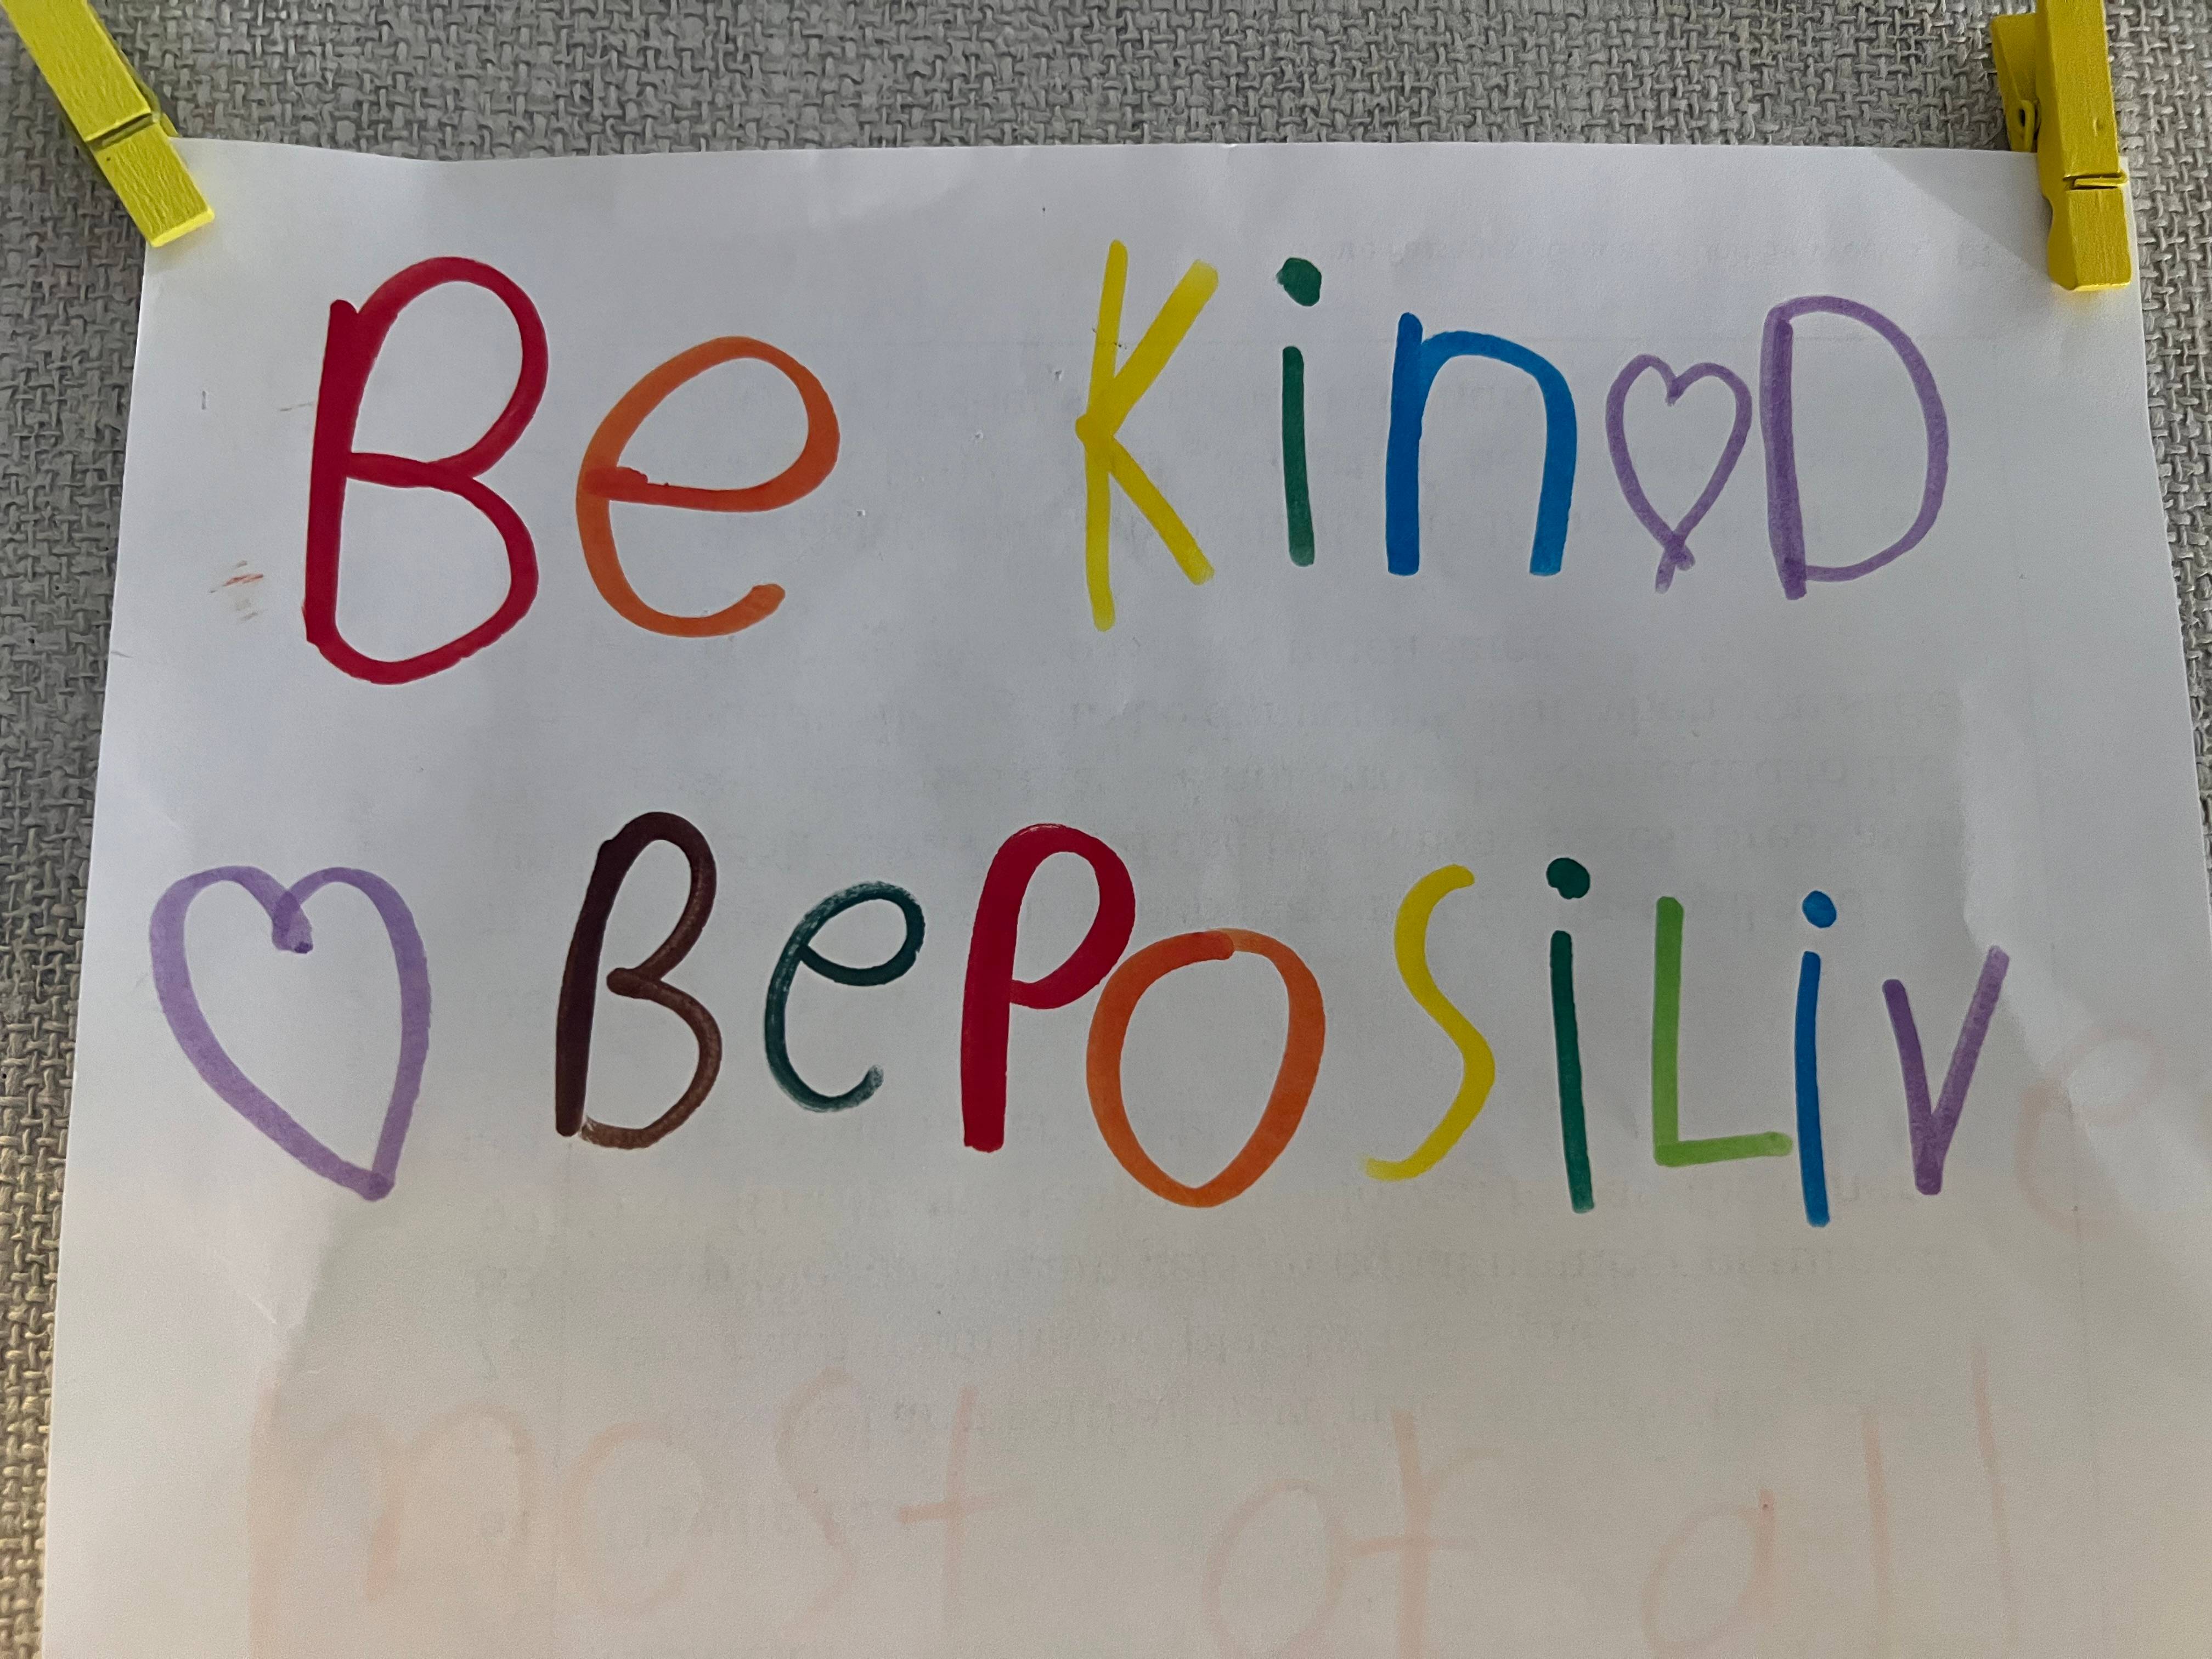 Be Kin♡D
♡ BePOSiLiv e
most of all